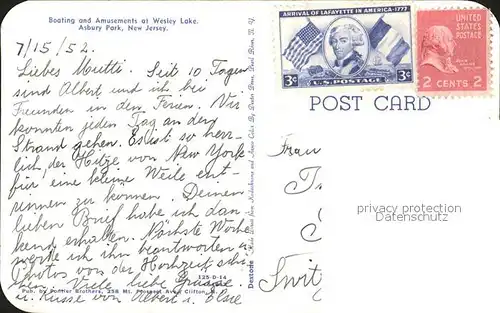 Boating and Amusements at Wesley Lake.
Asbury Park, New Jersey.
7/15/52.
Liebes Mutti. Seit 10 Tagen
sind Albert und ich bei
Freunden in den Ferien. Wir
konnten jeden Tag an den
Strand gehen. Es ist so herr-
lich, der Hitze von New York
für eine kleine Weile ent-
rinnen zu können. Deinen
lieben Brief habe ich dan
kend erhalten. Nächste Woche
werde ich ihn beantworten u.
Photos von der Hochzeit
Viele liebe Grüsse
u. Küsse von Albert u. Elsie
125-D-14
Pub. by Pontier Brothers, 258 Mt. Prospect Ave., Clifton, N. J.
ARRIVAL OF LAFAYETTE IN AMERICA-1777
3¢ U.S. POSTAGE 3¢
UNITED
STATES
POSTAGE
2 CENTS 2
POST CARD
Frau
privacy protection
Datenschutz
Switz